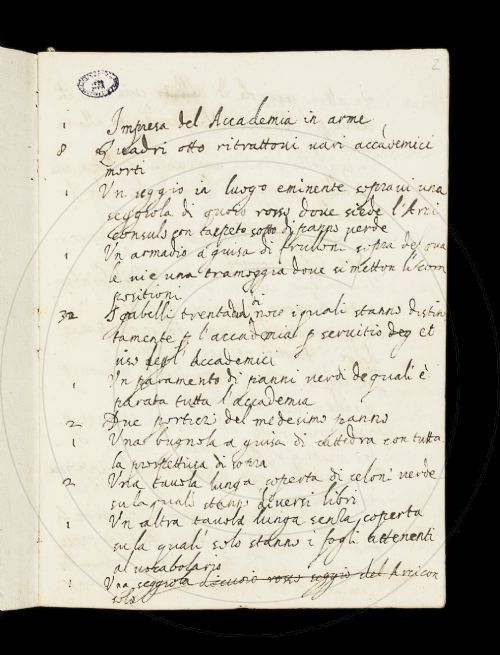 2
1 Impresa del Accademia in arme
8 Quadri otto ritrattovi vari accademici
morti
1 Un seggio in luogo eminente sopravi una
seggiola di quoio rosso dove siede l'Arci
consolo con tappeto sotto di panno verde
1 Un armadio a guisa di frulloni sopra del qua
le vi è una tramoggia dove si metton li com
positioni
32 Sgabelli trentadua di noce i quali stanno distin
tamente p l'accademia p servitio deg et
uso degl' Accademici
1 Un paramento di panni verdi de quali è
parata tutta l'accademia
2 Due portiere del medesimo panno
1 Una bugnola a guisa di cattedra con tutta
la prospettiva di sopra
2 Una tavola lunga coperta di celoni verde
su la quali stanno diversi libri
1 Un altra tavola lunga senza coperta
su la quali solo stanno i fogli attenenti
al vocabolario
1 Una seggiola di cuoio rosso seggio del Arcicon
solo